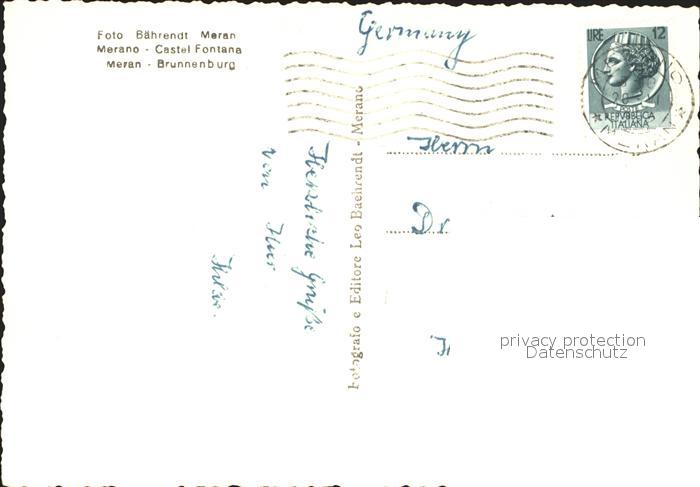 Foto Bährendt Meran
Merano - Castel Fontana
Meran - Brunnenburg
Germany
LIRE 12
REPVBBLICA
ITALIANA
MERAN
Herzliche Grüße
von Ihrer
Fotografo e Editore Leo Baehrendt - Merano
Herrn
Dr
privacy protection
Datenschutz